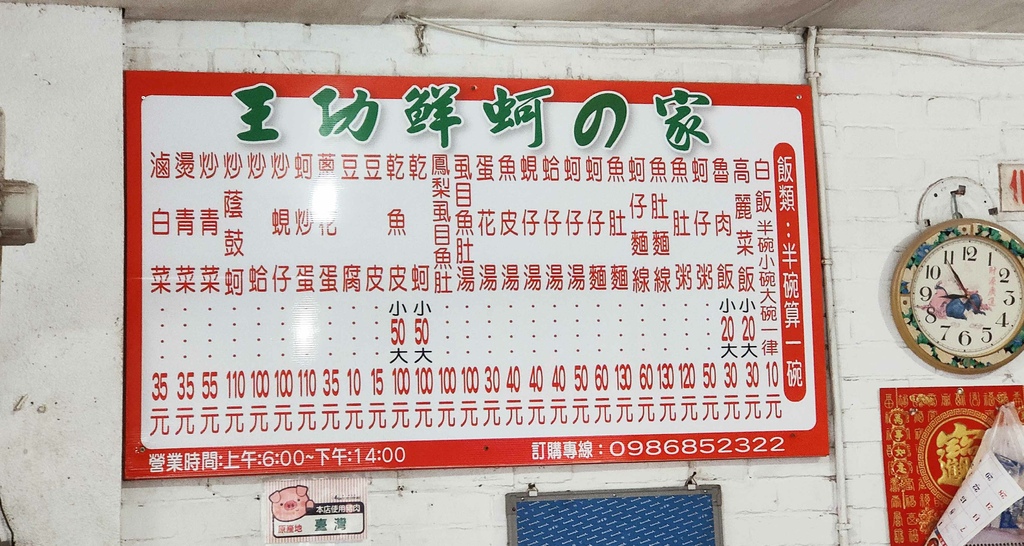 王功鮮蚵の家
飯類:半碗算一碗
白飯半碗小碗大碗一律10元
高麗菜飯......小20大30元
魯肉飯......小20大30元
蚵仔粥......50元
魚肚粥......120元
魚肚麵線......130元
蚵仔麵線......60元
魚肚麵......130元
蚵仔麵......60元
蚵仔湯......50元
蛤仔湯......40元
蜆仔湯......40元
魚皮湯......40元
蛋花湯......30元
虱目魚肚湯......100元
鳳梨虱目魚肚......100元
乾蚵小50大100元
乾魚皮小50大100元
豆皮......15元
豆腐......10元
蔥花蛋......35元
蚵炒蛋......110元
炒蜆仔......100元
炒蛤......100元
炒蔭鼓蚵......110元
炒青菜......55元
燙青菜......35元
滷白菜......35元
營業時間:上午:6:00~下午:14:00
訂購專線:0986852322
本店使用豬肉
原產地 臺灣
12
1
2
3
4
5
6
7
8
9
10
11